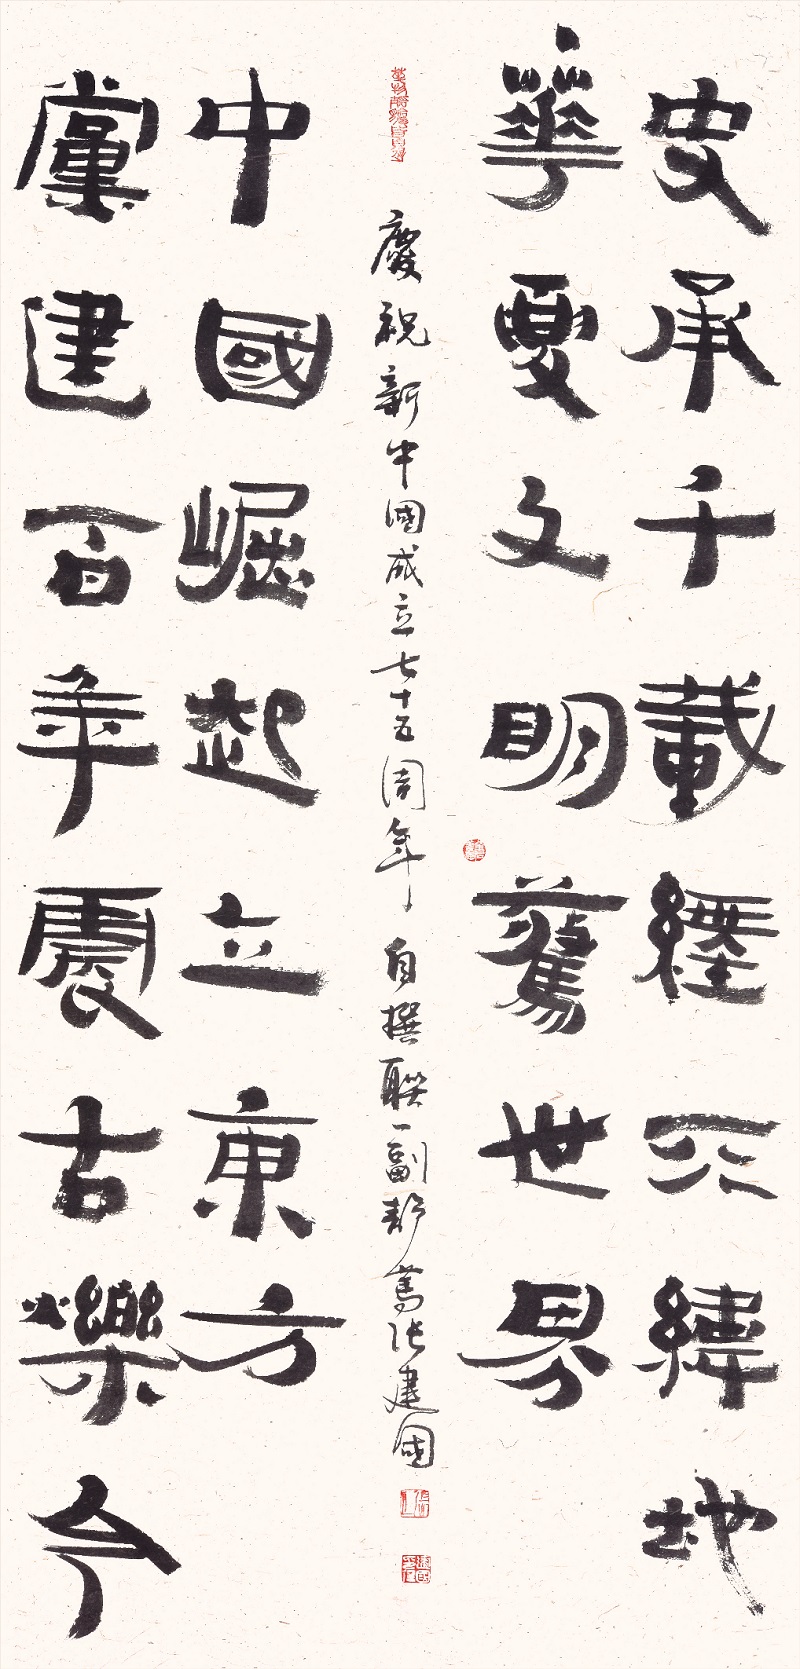 史承千載經天緯地
華夏文明驚世界
黨建百年震古爍今
中國崛起立東方
慶祝新中國成立七十五周年自撰聯一副張建國